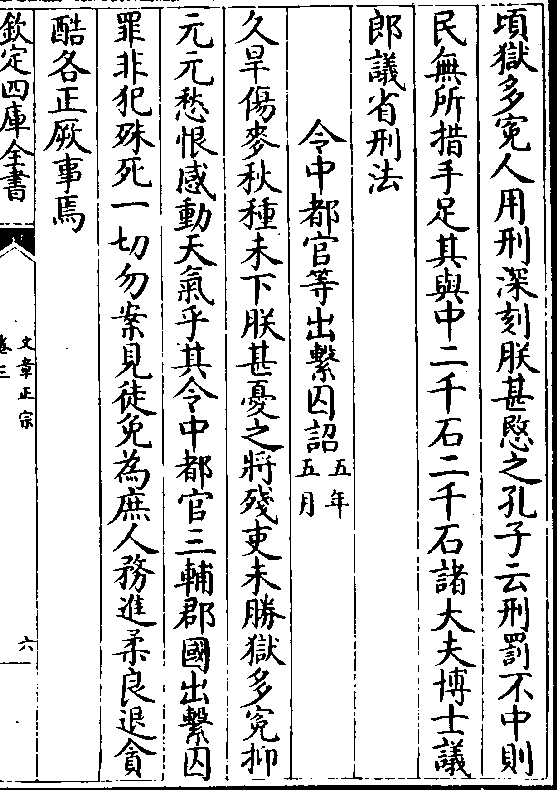 頃獄多冤人用刑深刻朕甚愍之孔子云刑罰不中則
民無所措手足其與中二千石二千石諸大夫博士議
郎議省刑法
令中都官等出繫囚詔五年五月
久旱傷麥秋種未下朕甚憂之將殘吏未勝獄多冤抑
元元愁恨感動天氣乎其令中都官三輔郡國出繫囚
罪非犯殊死一切勿案見徒免為庶人務進柔良退貪
酷各正厥事焉
欽定四庫全書
文章正宗
卷三
六